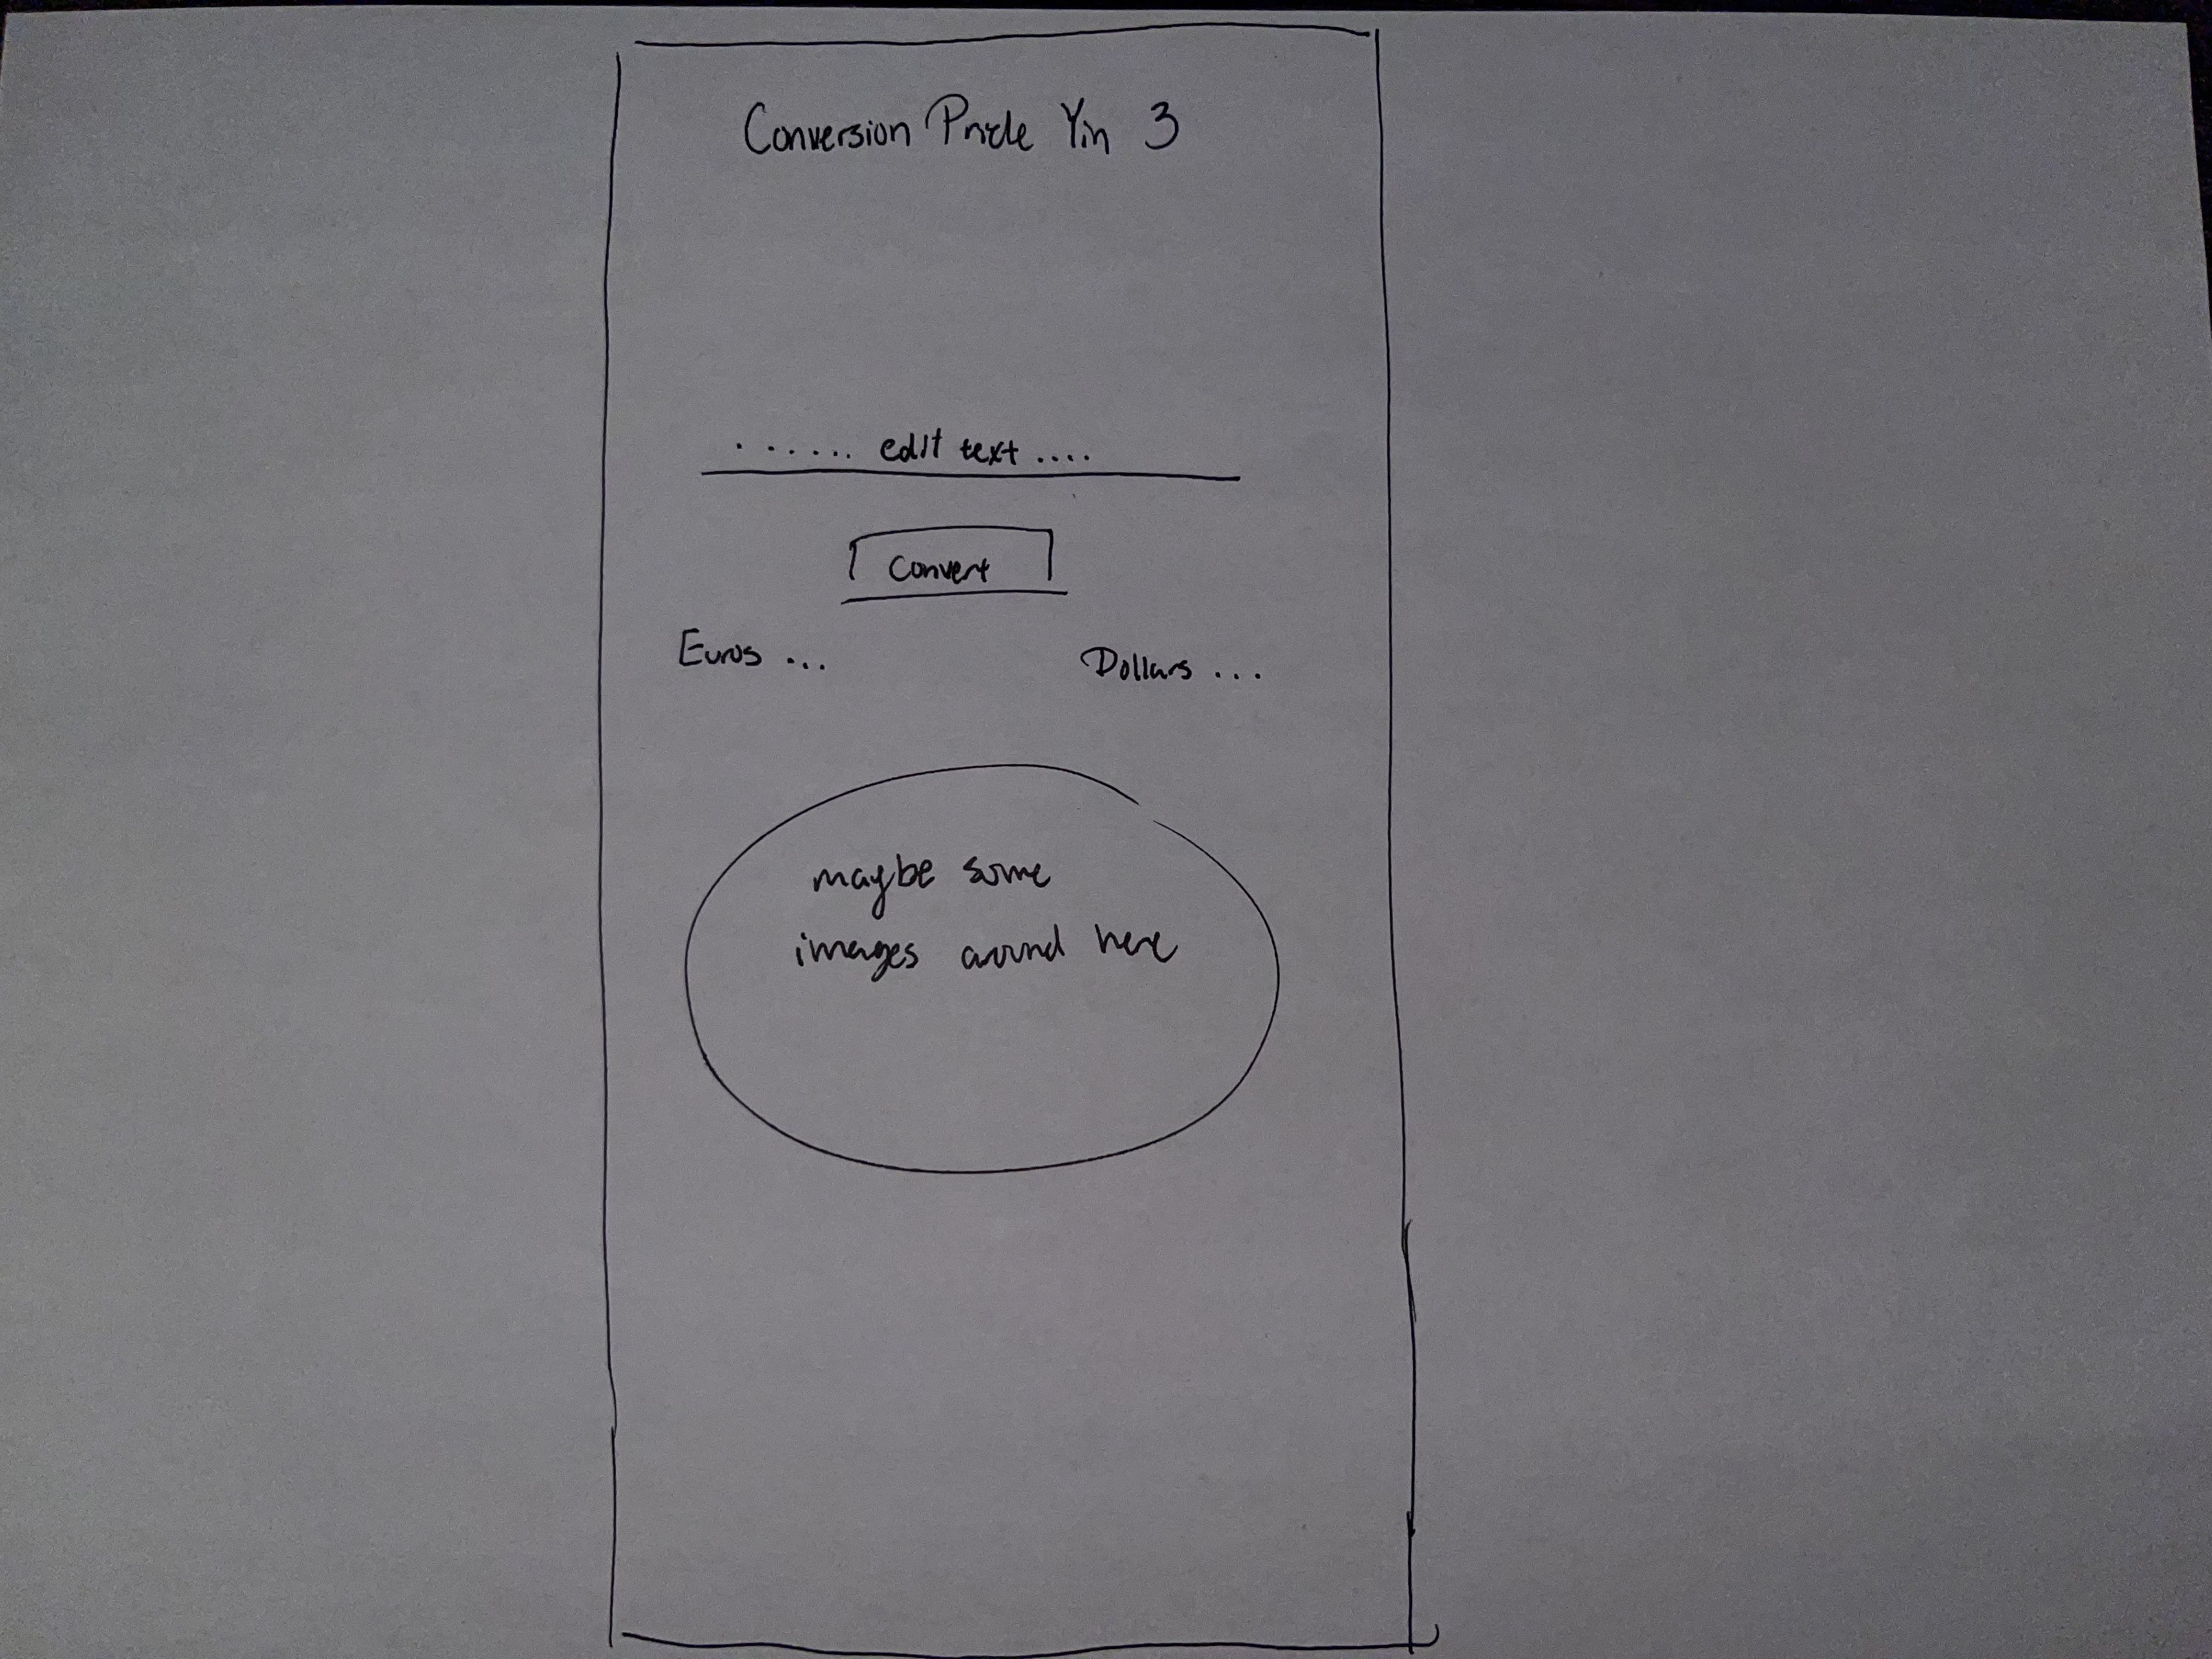 Conversion Pricle Yin 3
....... edit text ....
Convert
Euros ...
Dollars ...
maybe some
images around here